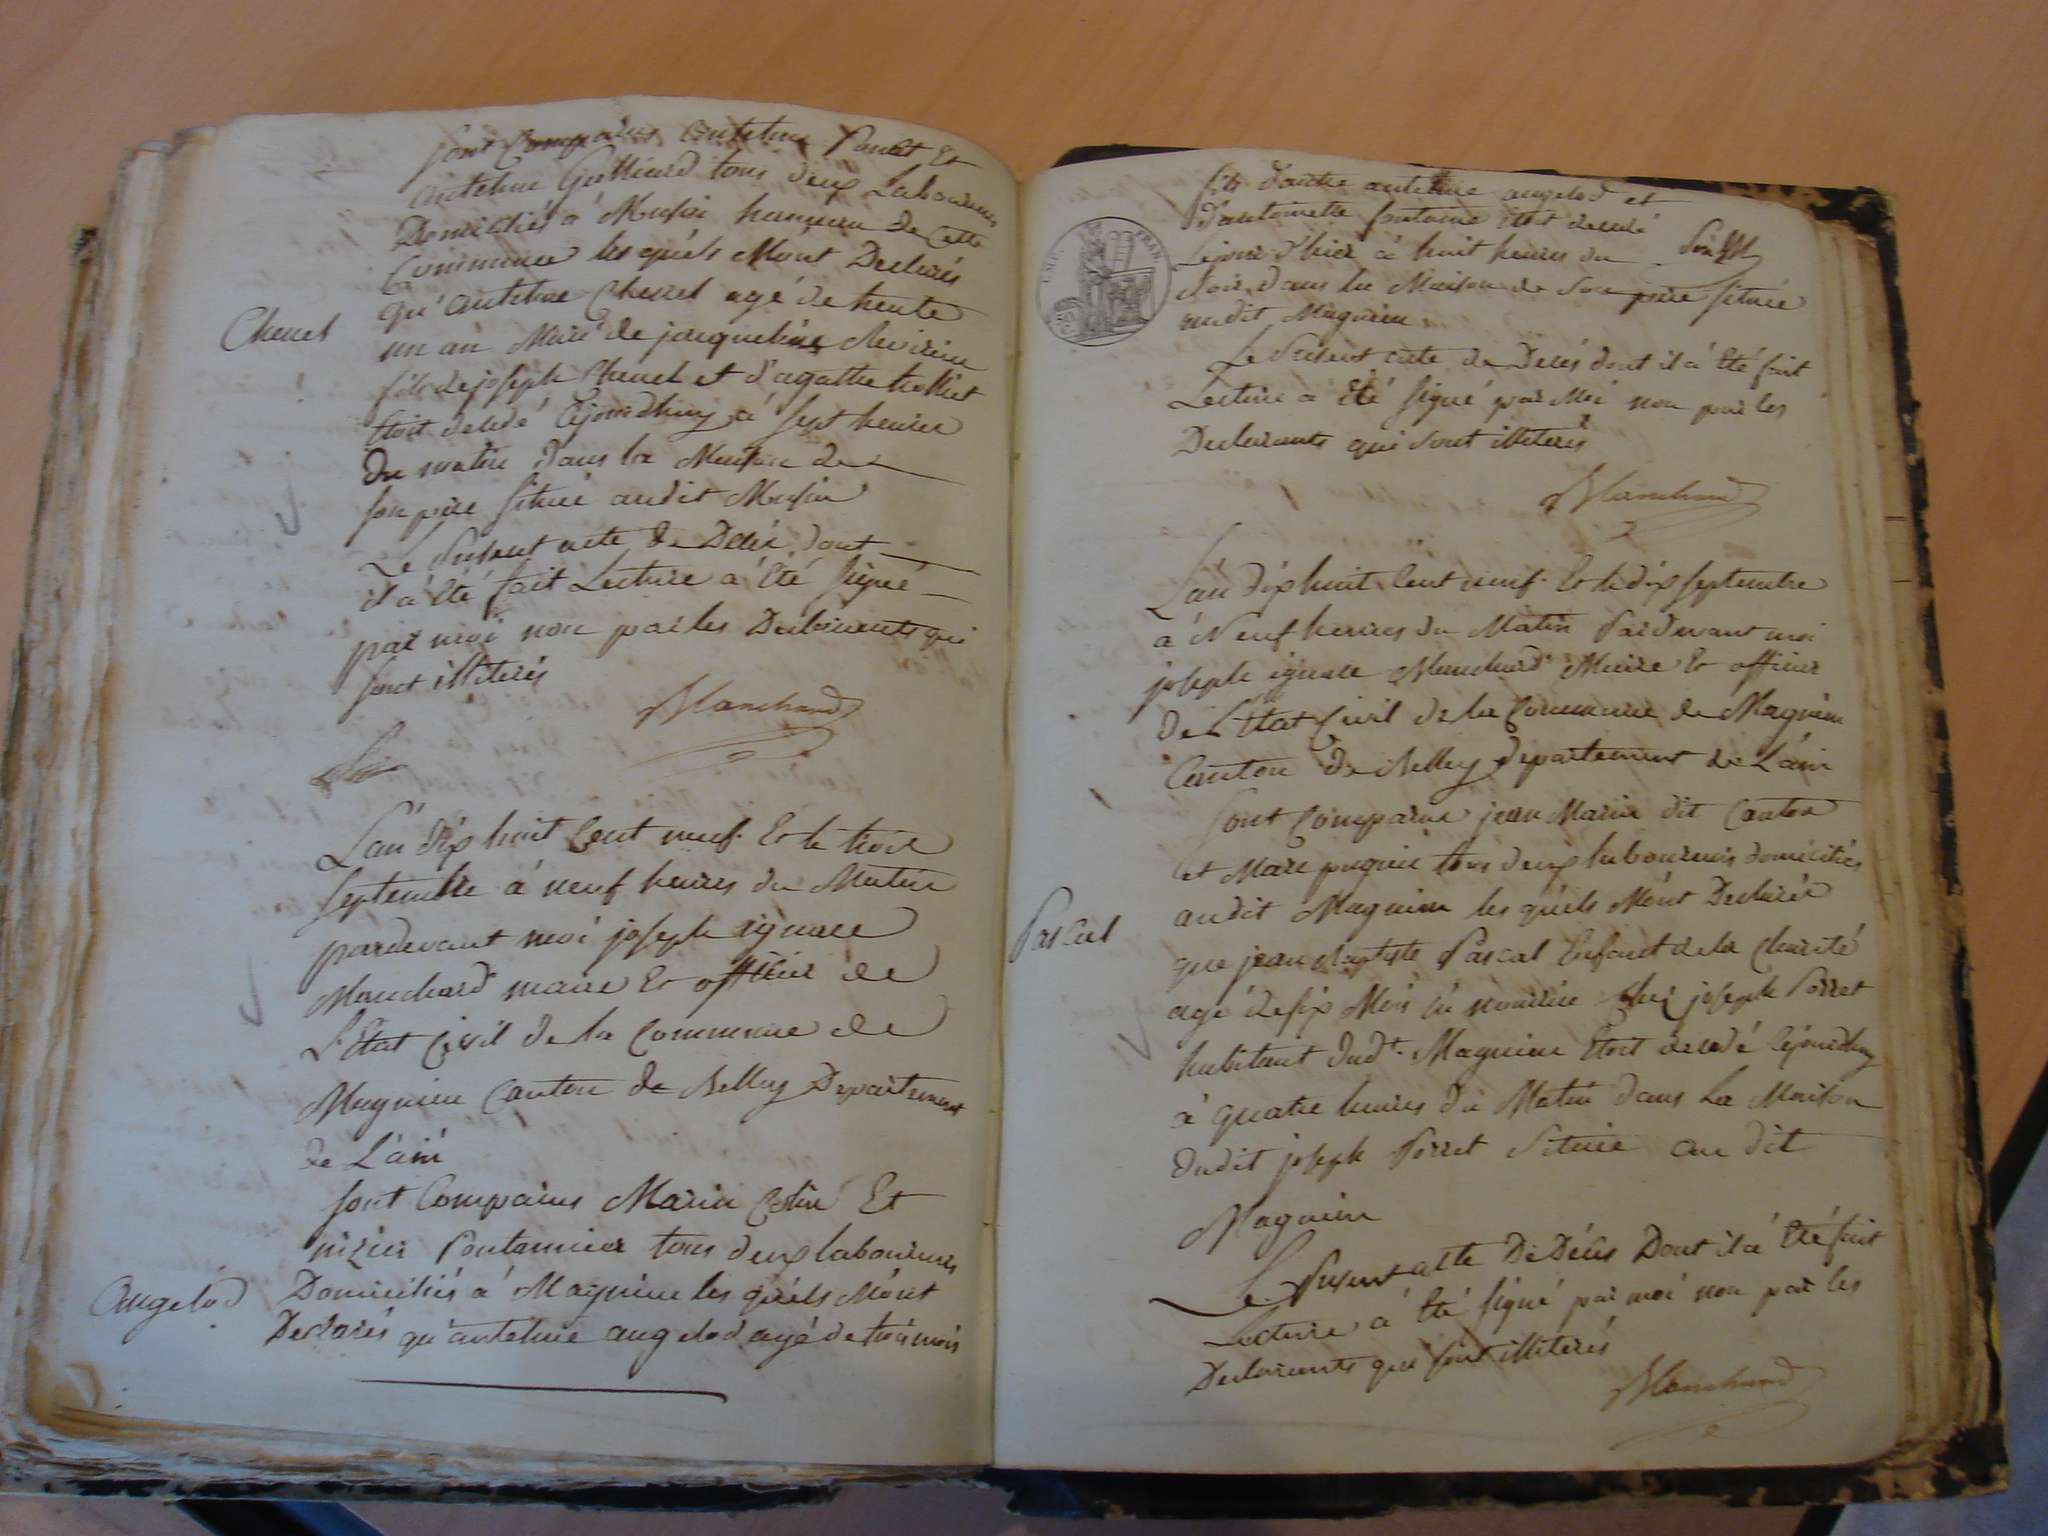 sont Comparus anthelme Ponset Et
anthelme Guilliard tous deux Laboureurs
Domiciliés à Musin hameau de Cette
Commune les quels M'ont Declarés
qu'anthelme Chenel agé de trente
Chenel
un an Marié de jacqueline
fils de joseph Chenel et d'agathe
Etoit decedé Cejourdhuy à sept heures
Du matin dans la Maison de
son père située audit Musin
Le Présent acte de Décés dont
il à Eté fait Lecture a Eté signé
par moi non par les Declarants qui
sont illiterés
Blanchard
L'an dix huit Cent neuf. Et le trois
septembre à neuf heures du Matin
pardevant moi joseph ignace
Blanchard maire Et officier de
L'Etat Civil de la Commune de
Magnieu Canton de Belley Departement
de L'ain
sont Comparus Marin Et
nizier tous deux laboureurs
Domiciliés à Magnieu les quels M'ont
Angelod
Declarés qu'anthelme angelod agé de trois mois
fils d'autre anthelme angelod et
d'antoinette fontaine Etoit decedé
Le jour d'hier à huit heures du
soir, dans la Maison de son père située
audit Magnieu
IMP. FRAN.
Le Présent acte de Décés dont il à Eté fait
Lecture a Eté signé par Moi non par les
Declarants qui sont illiterés
Blanchard
L'an dix huit Cent neuf. Et le dix septembre
à Neuf heures du Matin Pardevant moi
joseph ignace Blanchard Maire Et officier
de L'Etat Civil de la Commune de Magnieu
Canton de Belley departement de L'ain
sont Comparus jean Marin dit
et Marc tous deux laboureurs domiciliés
audit Magnieu les quels M'ont Declarés
Pascal
que jean Baptiste Pascal Enfant de la Charité
agé de six Mois en nourrice chez joseph Porret
habitant dud.t Magnieu Etoit decedé Cejourdhuy
à quatre heures du Matin dans La Maison
dudit joseph Porret Située au dit
Magnieu
Le Présent acte De Décés Dont il à Eté fait
Lecture a Eté signé par moi non par les
Declarants qui sont illiterés
Blanchard